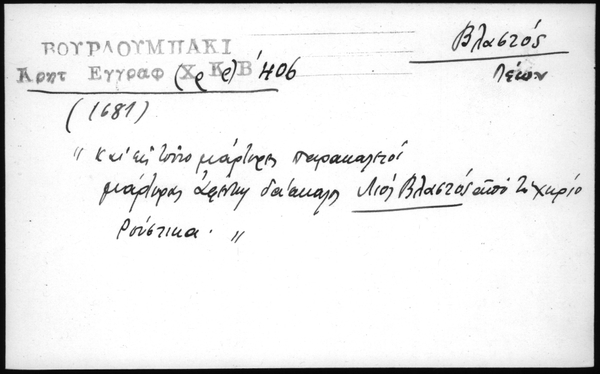 ΒΟΥΡΔΟΥΜΠΑΚΙ
Κρητ Εγγραφ (Χρκ) Β' 406
Βλαστός
Λέων
(1681)
" καί εἰς τοῦτο μάρτυρες παρακαλετοί
μάρτυρας δάσκαλος Λιός Βλαστός ἀπό τό χωρίο
Ρούστικα. "